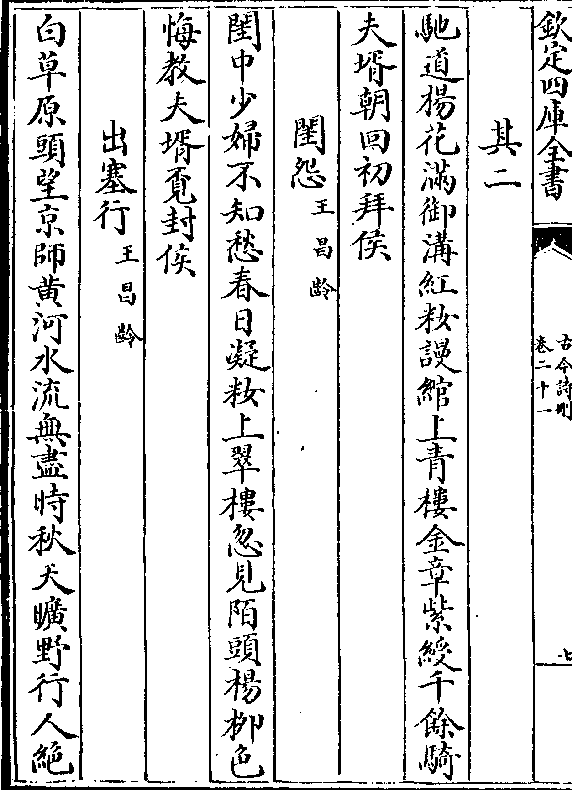 欽定四庫全書
古今詩刪
卷二十一
七
其二
馳道楊花滿御溝紅粧謾綰上青樓金章紫綬千餘騎
夫壻朝回初拜侯
閨怨王昌齡
閨中少婦不知愁春日凝粧上翠樓忽見陌頭楊柳色
悔教夫壻覓封侯
出塞行王昌齡
白草原頭望京師黄河水流無盡時秋天曠野行人絶